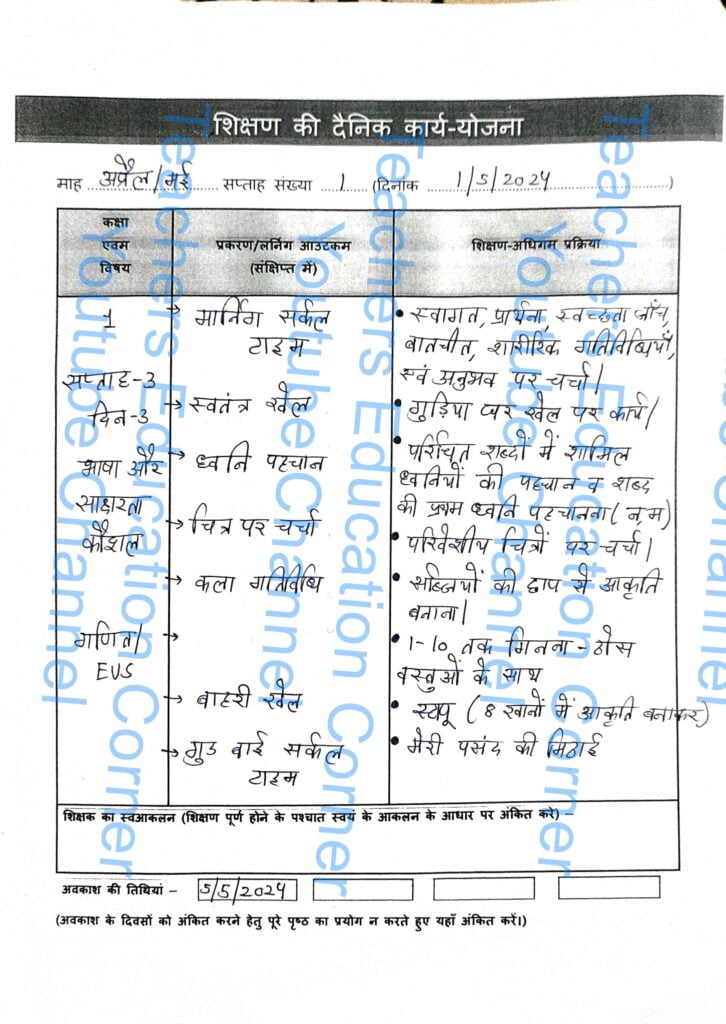 शिक्षण की दैनिक कार्य-योजना
माह अप्रैल/मई सप्ताह संख्या 1 (दिनांक 1/5/2024)
कक्षा
एवम
विषय
प्रकरण/लर्निंग आउटकम
(संक्षिप्त में)
शिक्षण-अधिगम प्रक्रिया
1
सप्ताह-3
दिन-3
भाषा और
साक्षरता
कौशल
गणित/
EVS
→ मार्निंग सर्कल
टाइम
→ स्वतंत्र खेल
→ ध्वनि पहचान
→ चित्र पर चर्चा
→ कला गतिविधि
→
→ बाहरी खेल
→ गुड बाई सर्कल
टाइम
• स्वागत, प्रार्थना, स्वच्छता जाँच,
बातचीत, शारीरिक गतिविधियाँ,
स्वं अनुभव पर चर्चा।
• गुड़िया घर खेल पर कार्य।
• परिचित शब्दों में शामिल
ध्वनियों की पहचान व शब्द
की प्रथम ध्वनि पहचानना (न,म)
• परिवेशीय चित्रों पर चर्चा।
• सब्जियों की छाप से आकृति
बनाना।
• 1-10 तक गिनना - ठोस
वस्तुओं के साथ
• स्टापू (8 खानों में आकृति बनाकर)
• मेरी पसंद की मिठाई
शिक्षक का स्वआकलन (शिक्षण पूर्ण होने के पश्चात स्वयं के आकलन के आधार पर अंकित करे) –
अवकाश की तिथियां – 5/5/2024
(अवकाश के दिवसों को अंकित करने हेतु पूरे पृष्ठ का प्रयोग न करते हुए यहाँ अंकित करें।)
Teachers Education Corner
Youtube Channel
Teachers Education Corner
Youtube Channel
Teachers Education Corner
Youtube Channel